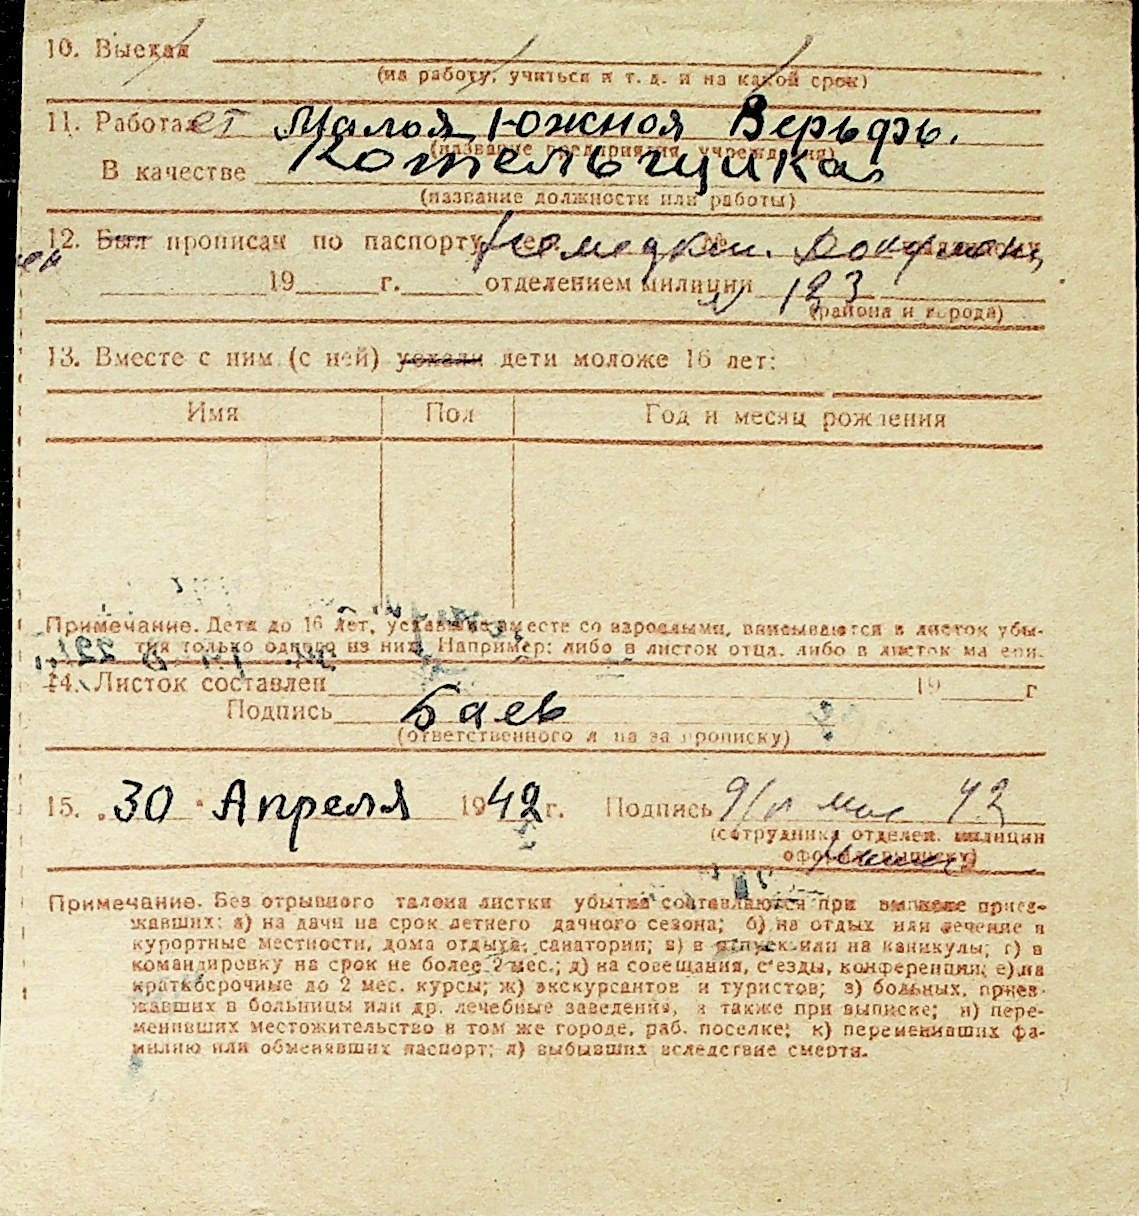 10. Выехал
(на работу, учиться и т. д. и на какой срок)
11. Работает Малоя Южноя Верьфь.
(название предприятия, учреждения)
В качестве Котельщика
(название должности или работы)
12. Был прописан по паспорту Немецкий. Документ
19 г. отделением милиции № 123
(района и города)
13. Вместе с ним (с ней) уехали дети моложе 16 лет:
Имя Пол Год и месяц рождения
Примечание. Дети до 16 лет, уехавшие вместе со взрослыми, вписываются в листок убы-
тия только одного из них. Например: либо в листок отца, либо в листок матери.
14. Листок составлен 19 г
Подпись Баев
(ответственного лица за прописку)
15. „30" Апреля 1942 г. Подпись 9/V мая 42
(сотрудника отделен. милиции
оформ. выписку)
Примечание. Без отрывного талона листки убытия составляются при выписке приез-
жавших: а) на дачи на срок летнего дачного сезона; б) на отдых или лечение в
курортные местности, дома отдыха, санатории; в) в отпуск или на каникулы; г) в
командировку на срок не более 2 мес.; д) на совещания, съезды, конференции; е) на
краткосрочные до 2 мес. курсы; ж) экскурсантов и туристов; з) больных, приез-
жавших в больницы или др. лечебные заведения, а также при выписке; и) пере-
менивших местожительство в том же городе, раб. поселке; к) переменивших фа-
милию или обменявших паспорт; л) выбывших вследствие смерти.